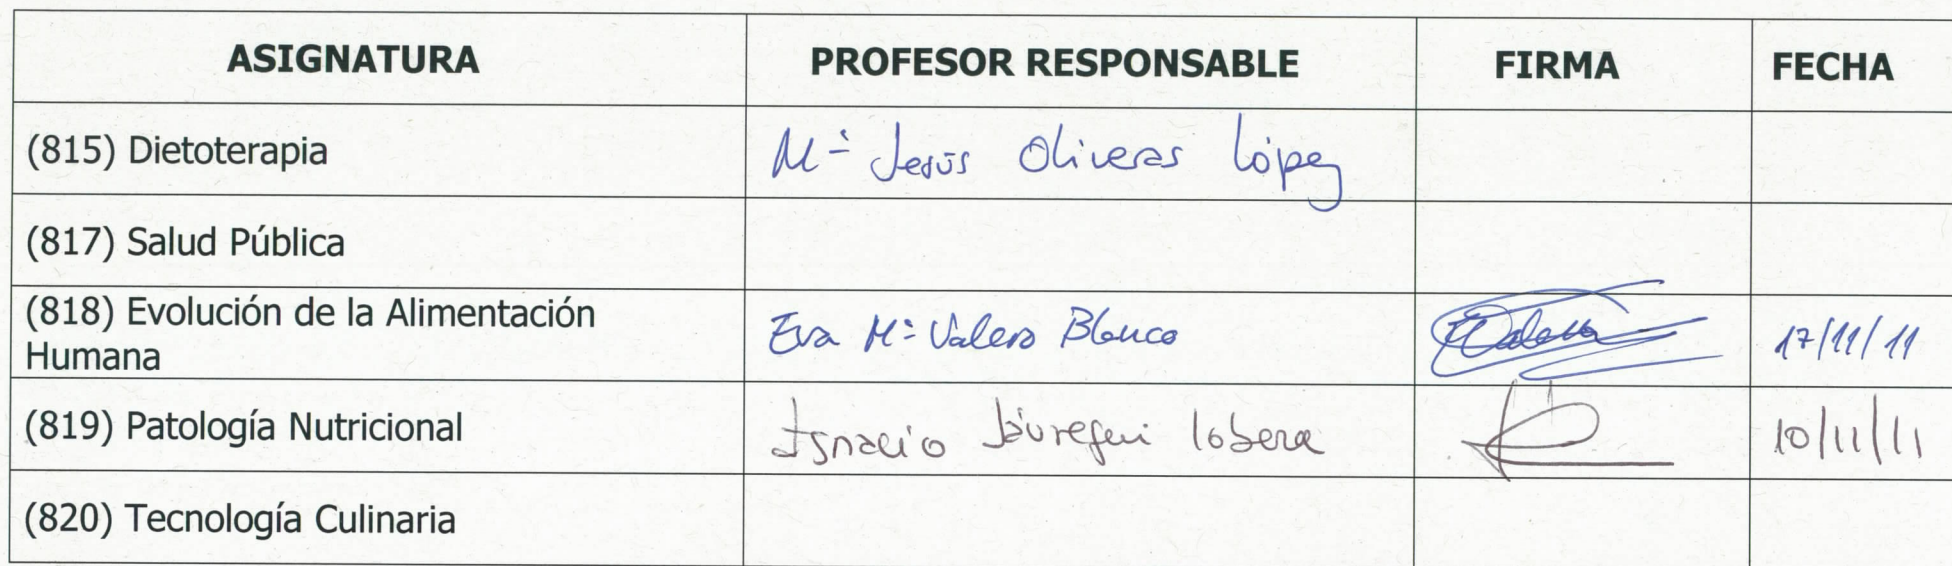 ASIGNATURA PROFESOR RESPONSABLE FIRMA FECHA
(815) Dietoterapia Mª Jesús Oliveras López
(817) Salud Pública
(818) Evolución de la Alimentación
Humana Eva Mª Valero Blanco 17/11/11
(819) Patología Nutricional Ignacio Jáuregui Lobera 10/11/11
(820) Tecnología Culinaria